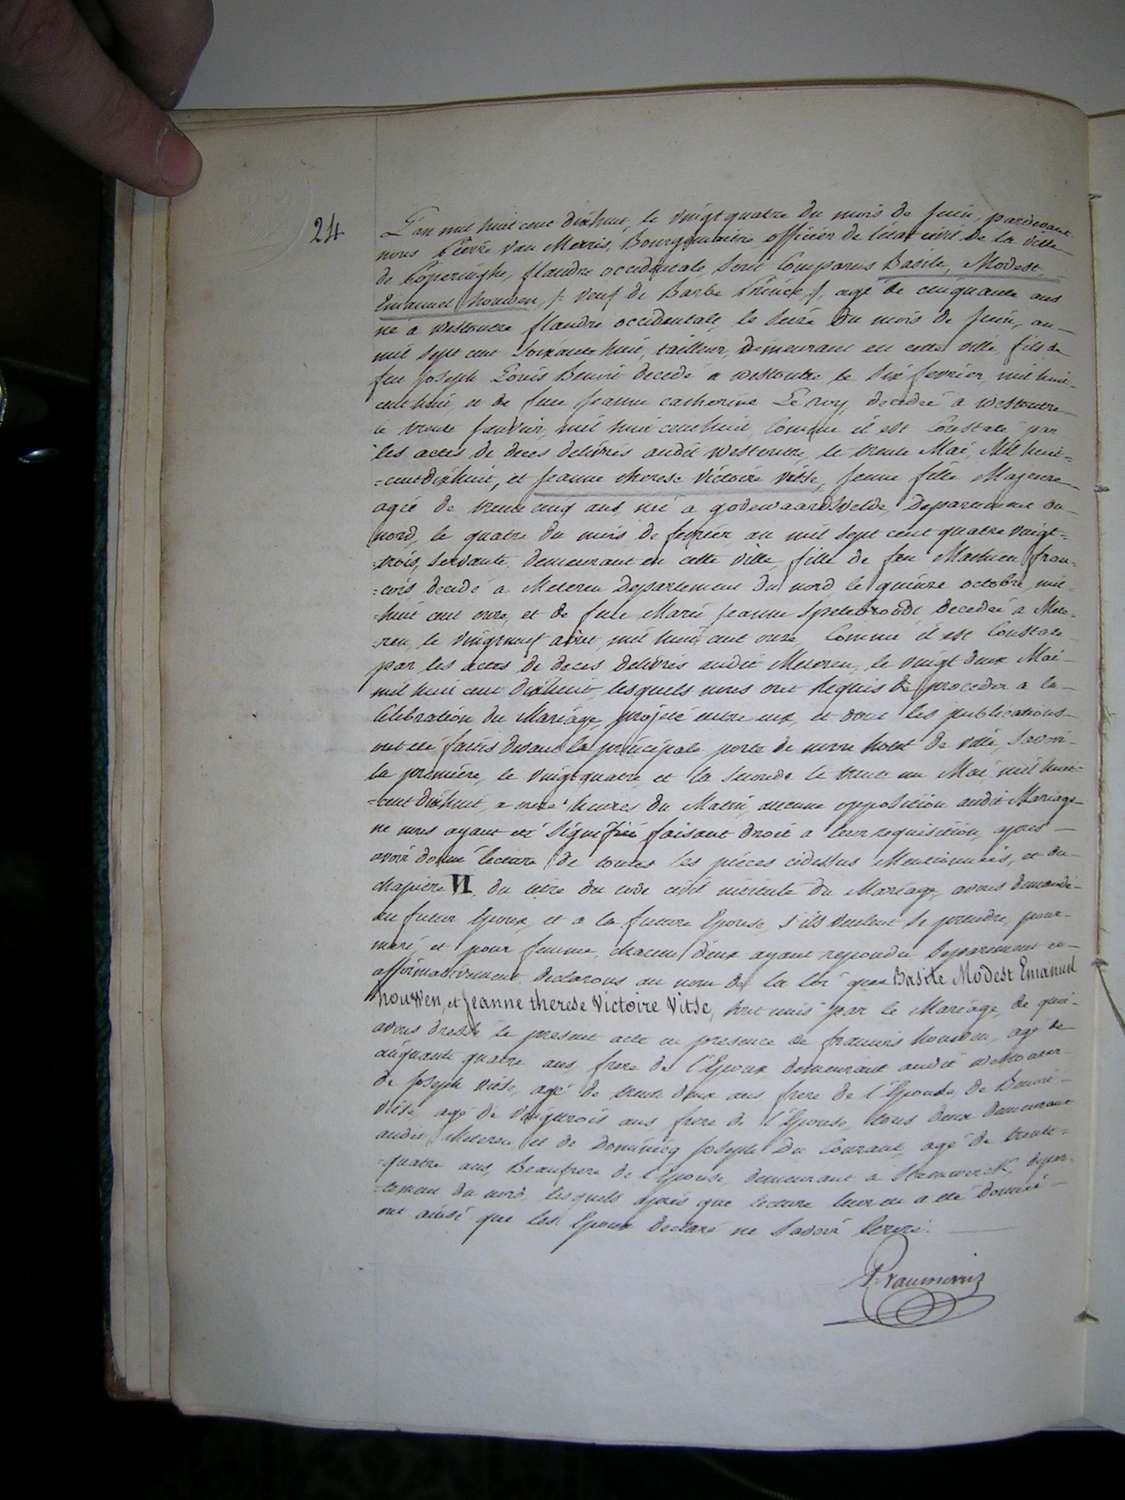 24
L'an mil huit cent dixhuit, le vingt quatre du mois de Juin, pardevant
nous Pierre Van Merris, Bourguemaitre officier de l'état civil de la ville
de Poperinghe, flandre occidentale, sont Comparus Basile, Modest,
Emanuel houwen, /: veuf de Barbe :/, agé de cinquante ans
né a westoutre flandre occidentale, le seize du mois de Juin, an
mil sept cent soixante huit, tailleur, demeurant en cette ville fils de
feu Joseph Louis Benoit decedé a westoutre le six fevrier, mil huit
cent huit, et de feue Jeanne catherine Le roy, decedée a westoutre
le trente Janvier, mil huit cent huit Comme il est Constaté par
les actes de deces delivrés audit westoutre, le trente Mai, Mil huit
=cent dixhuit, et Jeanne therese Victoire vitse, Jeune fille Majeure
agée de trente cinq ans, née a godewaardsvelde, Departement du
nord, le quatre du mois de fevrier an mil sept cent quatre vingt=
=trois, servante, demeurant en cette ville fille de feu Mathieu fran=
=cois decedé a Meteren Departement du nord le quinze octobre, mil
=huit cent onze, et de feue Marie Jeanne decedée a Mete=
=ren, le vingtneuf aout, mil huit cent onze Comme il est Constaté
par les actes de deces delivrés audit Meteren, le vingt deux Mai
mil huit cent dixhuit, lesquels nous ont Requis de proceder a la
Célébration du Mariage, projeté entre eux, et dont les publications
ont été faites devant la principale porte de notre hotel de ville, savoir
la première, le vingt quatre, et la seconde le trente un Mai, mil huit
=cent dixhuit, a onze heures du Matin, aucune opposition audit Mariage
ne nous ayant été signifiée faisant droit a leur requisition, après
avoir donné lecture de toutes les pièces cidessus Mentionnées, et du
chapitre VI du titre du code civil intitulé du Mariage, avons demandé
au futur Epoux, et a la future Epouse, s'ils veulent se prendre, pour
mari, et pour femme, chacun d'eux ayant repondu separement et
affirmativement declarons au nom de la loi que Basile Modest Emanuel
houwen, et Jeanne therese Victoire Vitse, sont unis par le Mariage, de quoi
avons dressé le present acte en presence de francois houwen, agé de
cinquante quatre ans, frere de l'Epoux demeurant audit westoutre
de Joseph vitse, agé de trente deux ans frere de l'Epouse, de Benoit
vitse, agé de vingt trois ans frere de l'Epouse, tous deux demeurant
audit Meteren, et de Dominicq Joseph Du Courant, agé de trente=
=quatre ans, Beaufrere de l'Epouse, demeurant a Steenwerck, depar=
=tement du nord, lesquels après que lecture leur en a été donnée
ont ainsi que les Epoux declaré ne savoir Ecrire.
P. vanmerris